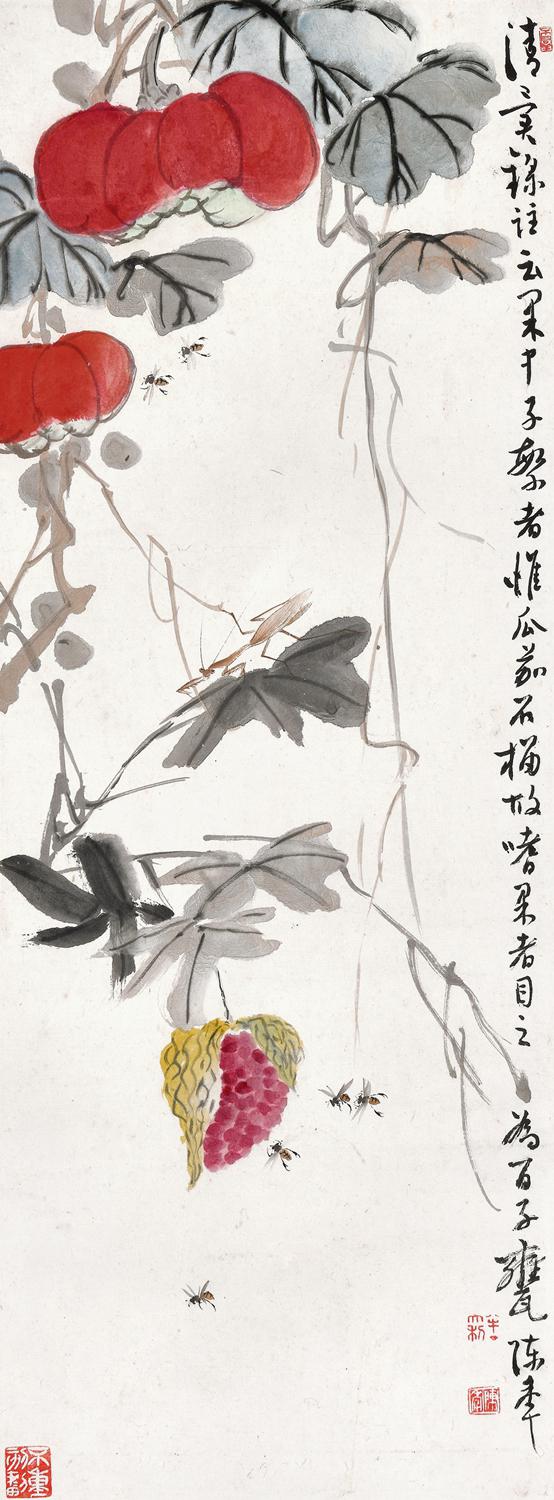 清異錄註云果中子繁者惟瓜茄石榴故嗜果者目之為百子甕陳年
陳年